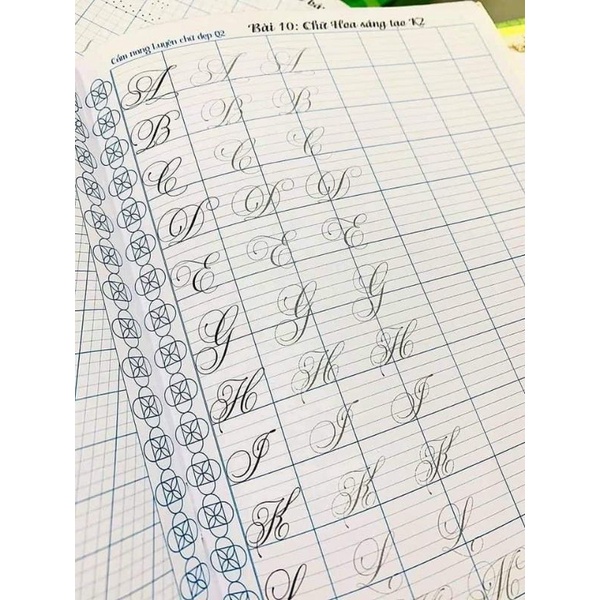 Cẩm nang Luyện chữ đẹp Q2
Bài 10: Chữ Hoa sáng tạo K2
A A A
B B B
C C C
D D D
E E E
G G G
H H H
I I I
K K K
L L L
M M